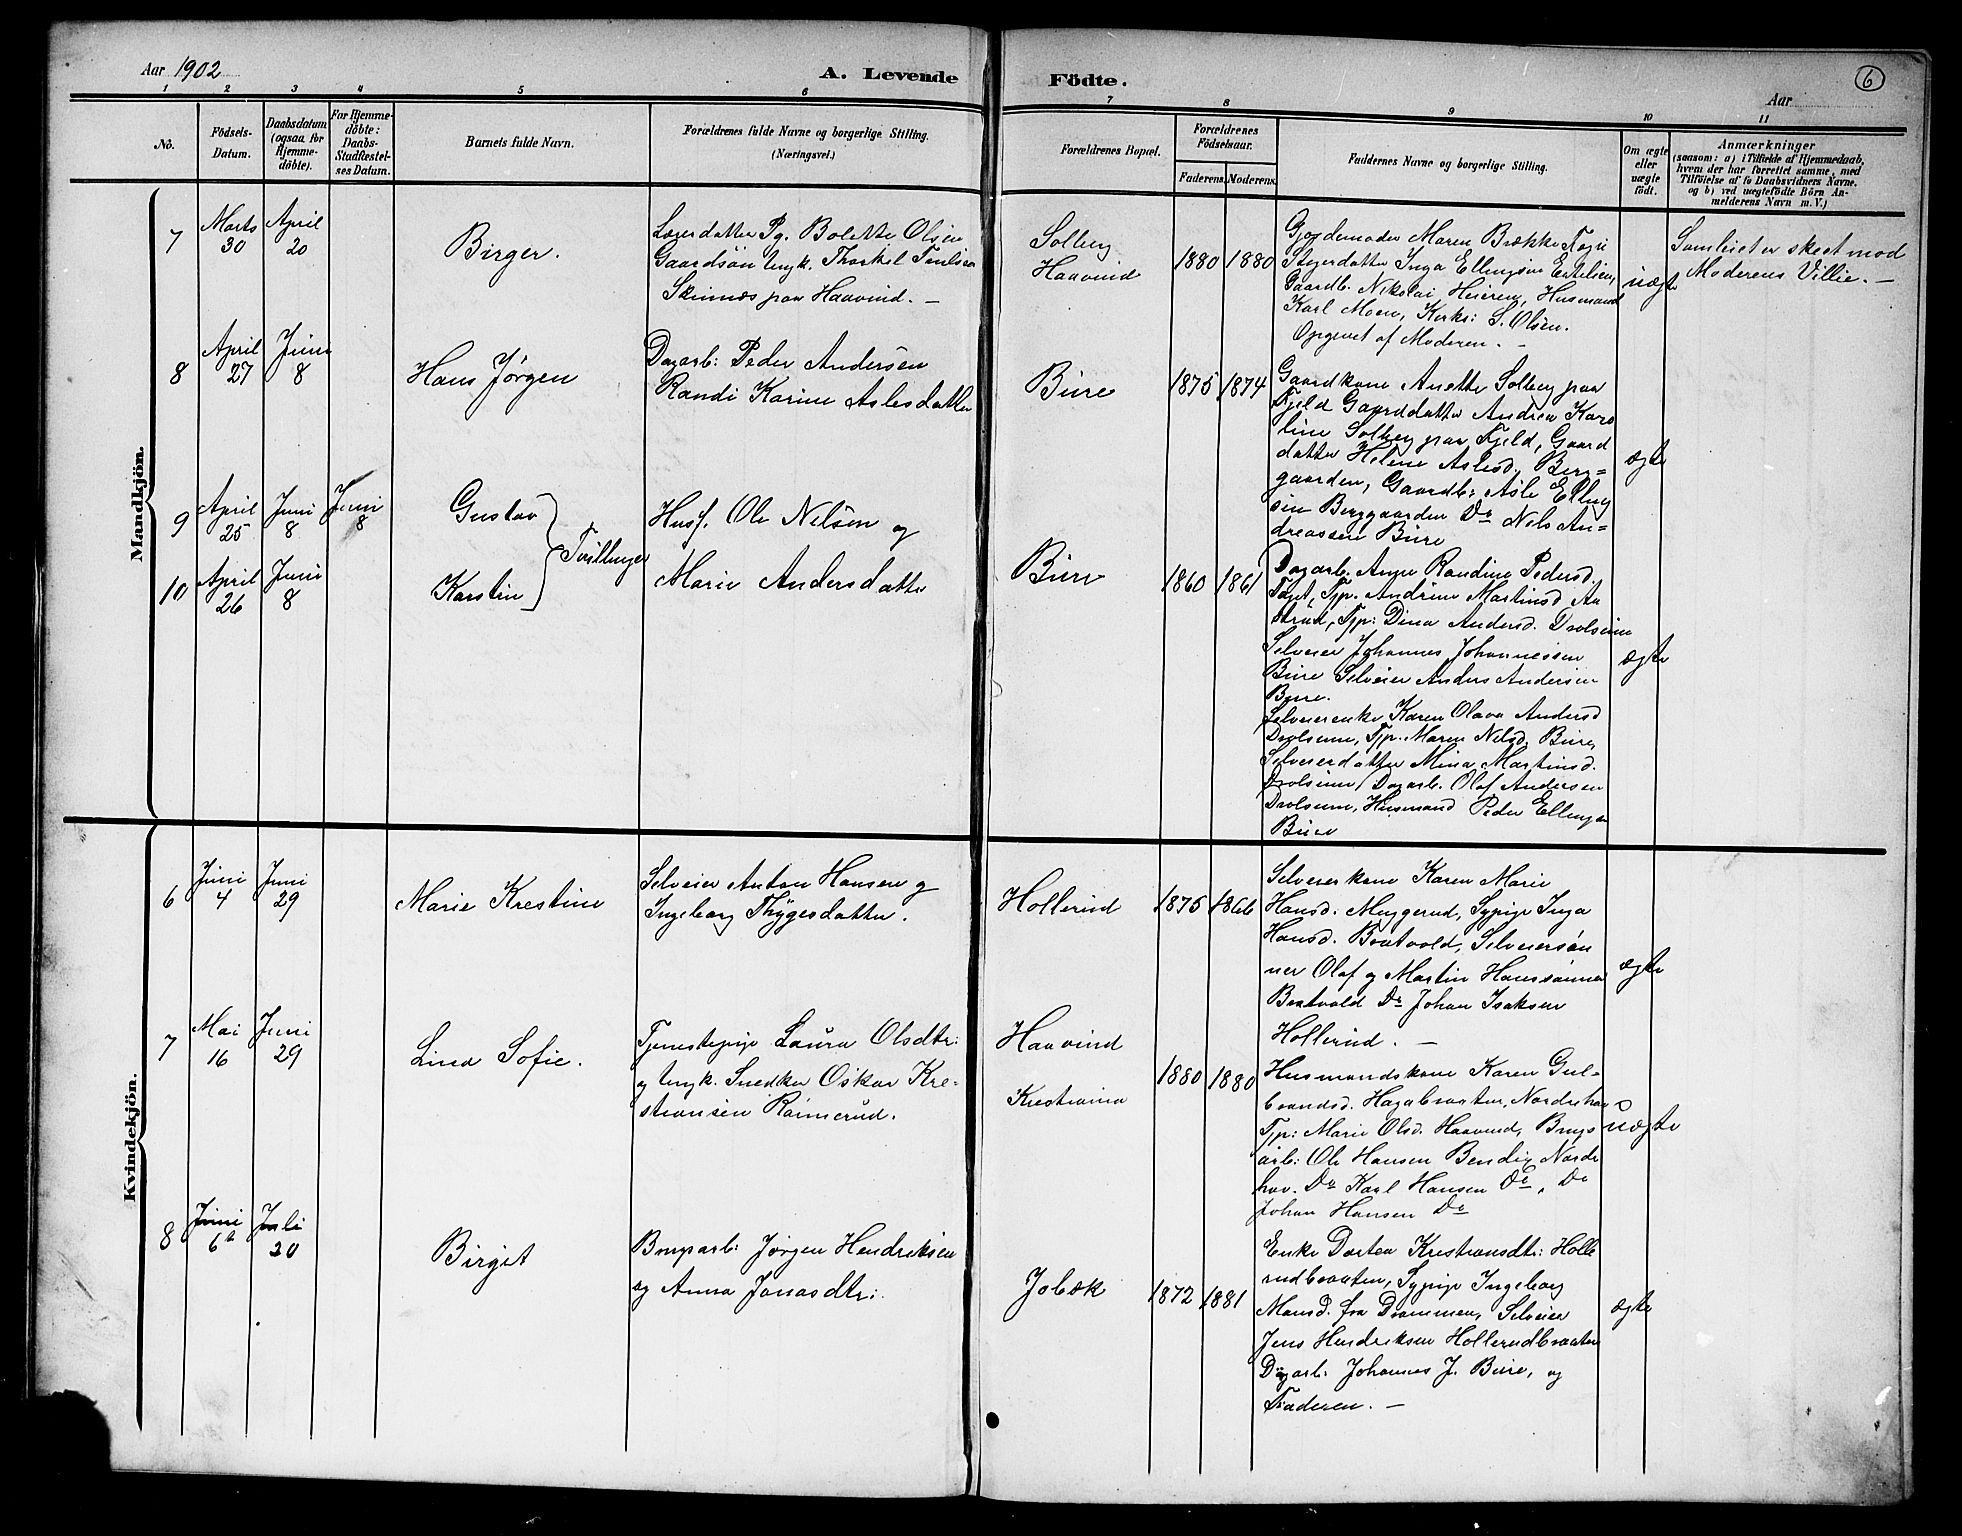 Aar 1902
A. Levende Födte.
6
Aar
1 2 3 4 5 6 7 8 9 10 11
Nò.
Födsels-Datum.
Daabsdatum (ogsaa for Hjemmedöbte).
For Hjemmedöbte: Daabs-Stadfæstelses Datum.
Barnets fulde Navn.
Forældrenes fulde Navne og borgerlige Stilling.
(Næringsvei.)
Forældrenes Bopæl.
Forældrenes Födselsaar.
Faderens. Moderens.
Faddernes Navne og borgerlige Stilling.
Om ægte eller uægte födt.
Anmærkninger
(saasom: a) i Tilfælde af Hjemmedaab, hvem der har forrettet samme, med Tilföielse af to Daabsvidners Navne. og b) ved uægtefödte Börn Anmelderens Navn m. V.)
Mandkjön.
7
Marts 30
April 20
Birger.
Pg. Bolette Olsen
Gaardsøn Ungk. Thorkel
Skinnes paa Haavind. —
Solberg
Haavind
1880 1880
Maren Brække
Inga Ellingsen
Gaardb. Nikolai Heieren, Husmand
Karl Moen, Kirks: S. Olsen.
Opgivet af Moderen. -
uægte
Samleiet er skeet mod
Moderens Villie. —
8
April 27
Juni 8
Hans Jørgen
Dagarb: Peder Andersen
Randi Karine Aslesdatter
Bure
1875 1874
Gaardkone Anette Solberg paa
Fjeld Gaarddatter Andrea Karo
line Solberg paa Fjeld, Gaard
datter Helene Aslesd. Berg=
gaarden, Gaardb: Asle Elling
sen Berggaarden Do Nels An=
dreassen Bure
ægte
9
April 25
Juni 8
Juni 8
Gustav
Tvillinger
Husf. Ole Nelsen og
10
April 26
Juni 8
Karstin
Marie Andersdatter
Bure
1860 1861
Dagarb. Anne Randine Pedersd.
Tjp. Andrine Martinsd. Aa
strud, Tjp: Dina Andersd. Drolsum
Selveier Johannes Johannessen
Bure Selveier Anders Andersen
Bure.
Selveierenke Karen Olava Andersd
Drolsum, Tjp. Maren Nelsd. Bure,
Selveierdatter Mina Martinsd.
Drolsum, Dagarb. Olaf Andersen
Drolsum, Husmand Peder Ellingsen
Bure
ægte
Kvindekjön.
6
Juni 4
Juni 29
Marie Krestine
Selveier Anton Hansen og
Ingeborg Thygesdatter.
Hollerud
1875 1866
Selveierkone Karen Marie
Hansd. Muggerud, Sypige Inga
Hansd. Bratvold, Selveiersøn
ner Olaf og Martin Hanssønner
Bratvold Do Johan Isaksen
Hollerud. —
ægte
7
Mai 16
Juni 29
Lina Sofie.
Tjenestepige Laura Olsdtr:
og Ungk. Snedker Oskar Kre-
stiansen Rømerud.
Haavind
Krestiania
1880 1880
Husmandskone Karen Gul-
brandsd. Hagabraaten, Nordrehov
Tjp: Marie Olsd. Haavind, Brugs
arb: Ole Hansen Bendix Nordr
hov. Do Karl Hansen Do, Do
Johan Hansen Do
uægte
8
Juni 6te
Juli 20
Birgit
Brugarb: Jørgen Hendriksen
og Anna Jonasdtr:
Jobæk
1872 1881
Enke Dortea Krestiansdtr: Holle
rudbraaten, Sypige Ingeborg
Monsd. fra Drammen, Selveier
Jens Hendriksen Hollerudbraaten
Dagarb. Johannes J. Bure, og
Faderen. —
ægte